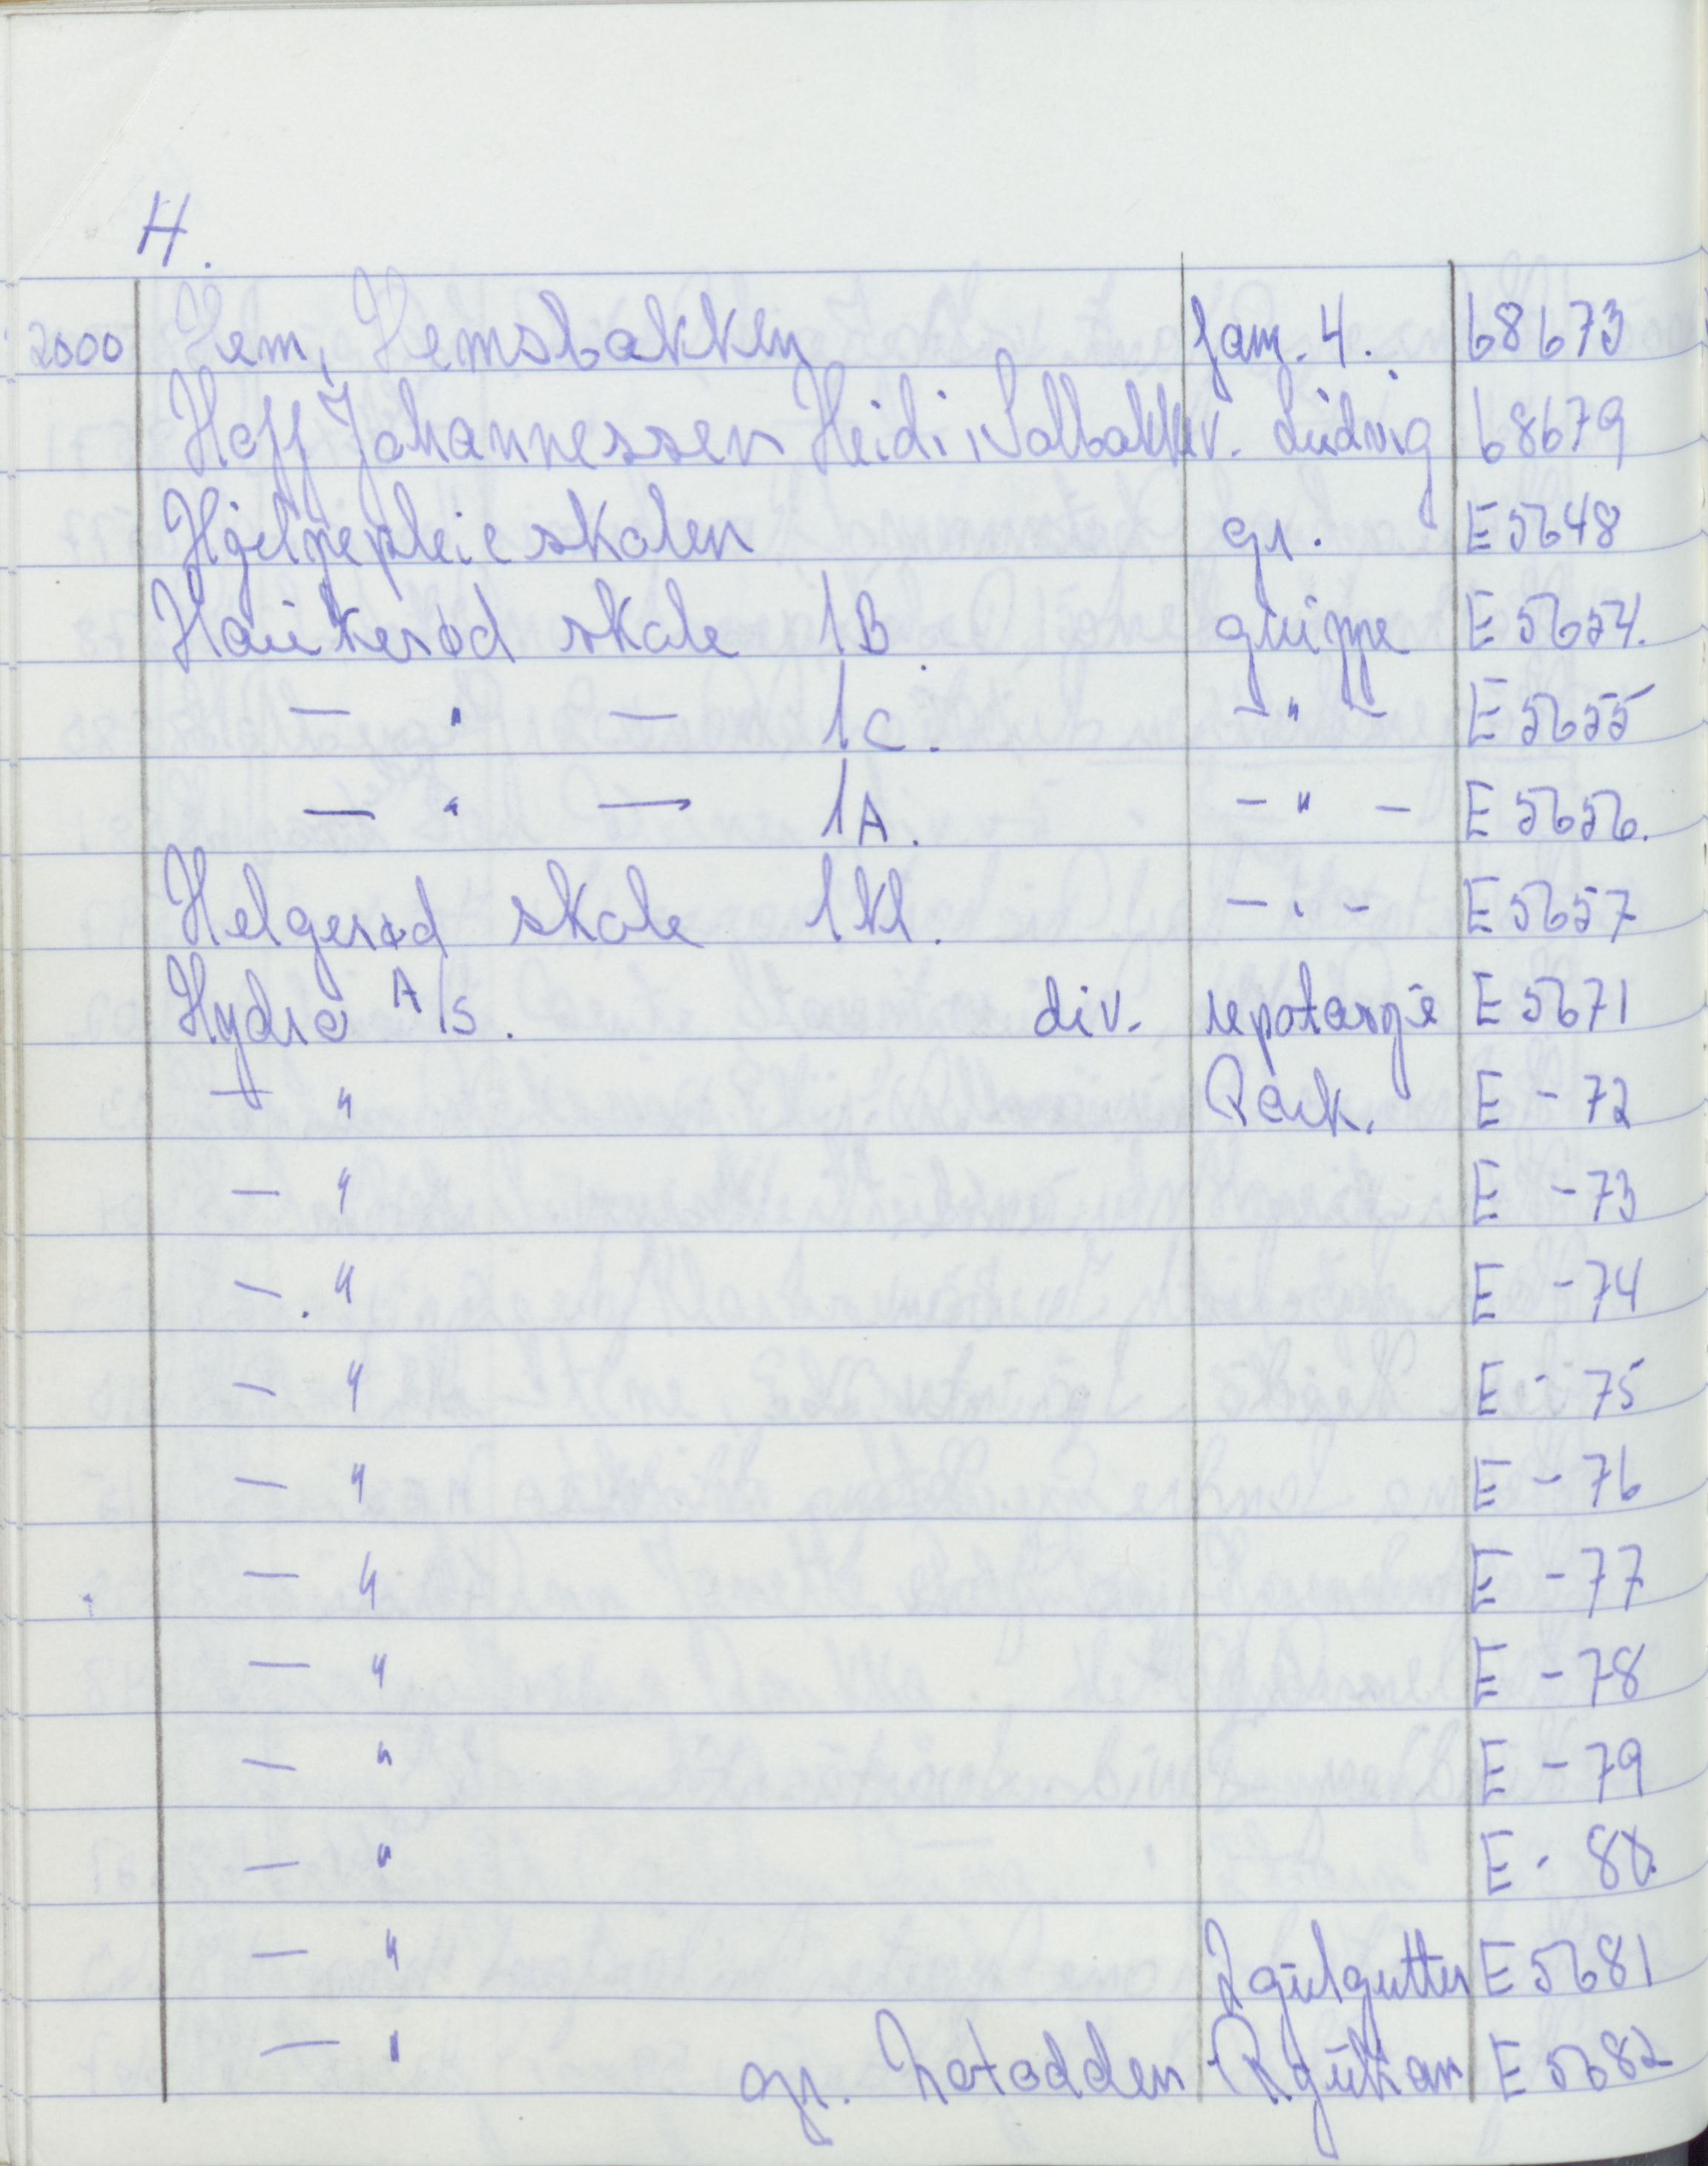 H.
2000 Hem, Hemsbakken fam. 4. 68673
Hoff Johannessen Heidi, Solbakken. Ludvig 68679
Hjelpepleieskolen gr. E 5648
Haukerød skole 1B gruppe E 5654.
— " — 1C. — " — E 5655
— " — 1A. — " — E 5656.
Helgerød skole 1kl. — " — E 5657
Hydro A/S. div. repotasje E 5671
— " Park. E - 72
— " E - 73
— " E - 74
— " E - 75
— " E - 76
— " E - 77
— " E - 78
— " E - 79
— " E - 80.
— " 2 gutter E 5681
— " gr. Notodden Rjukan E 5682